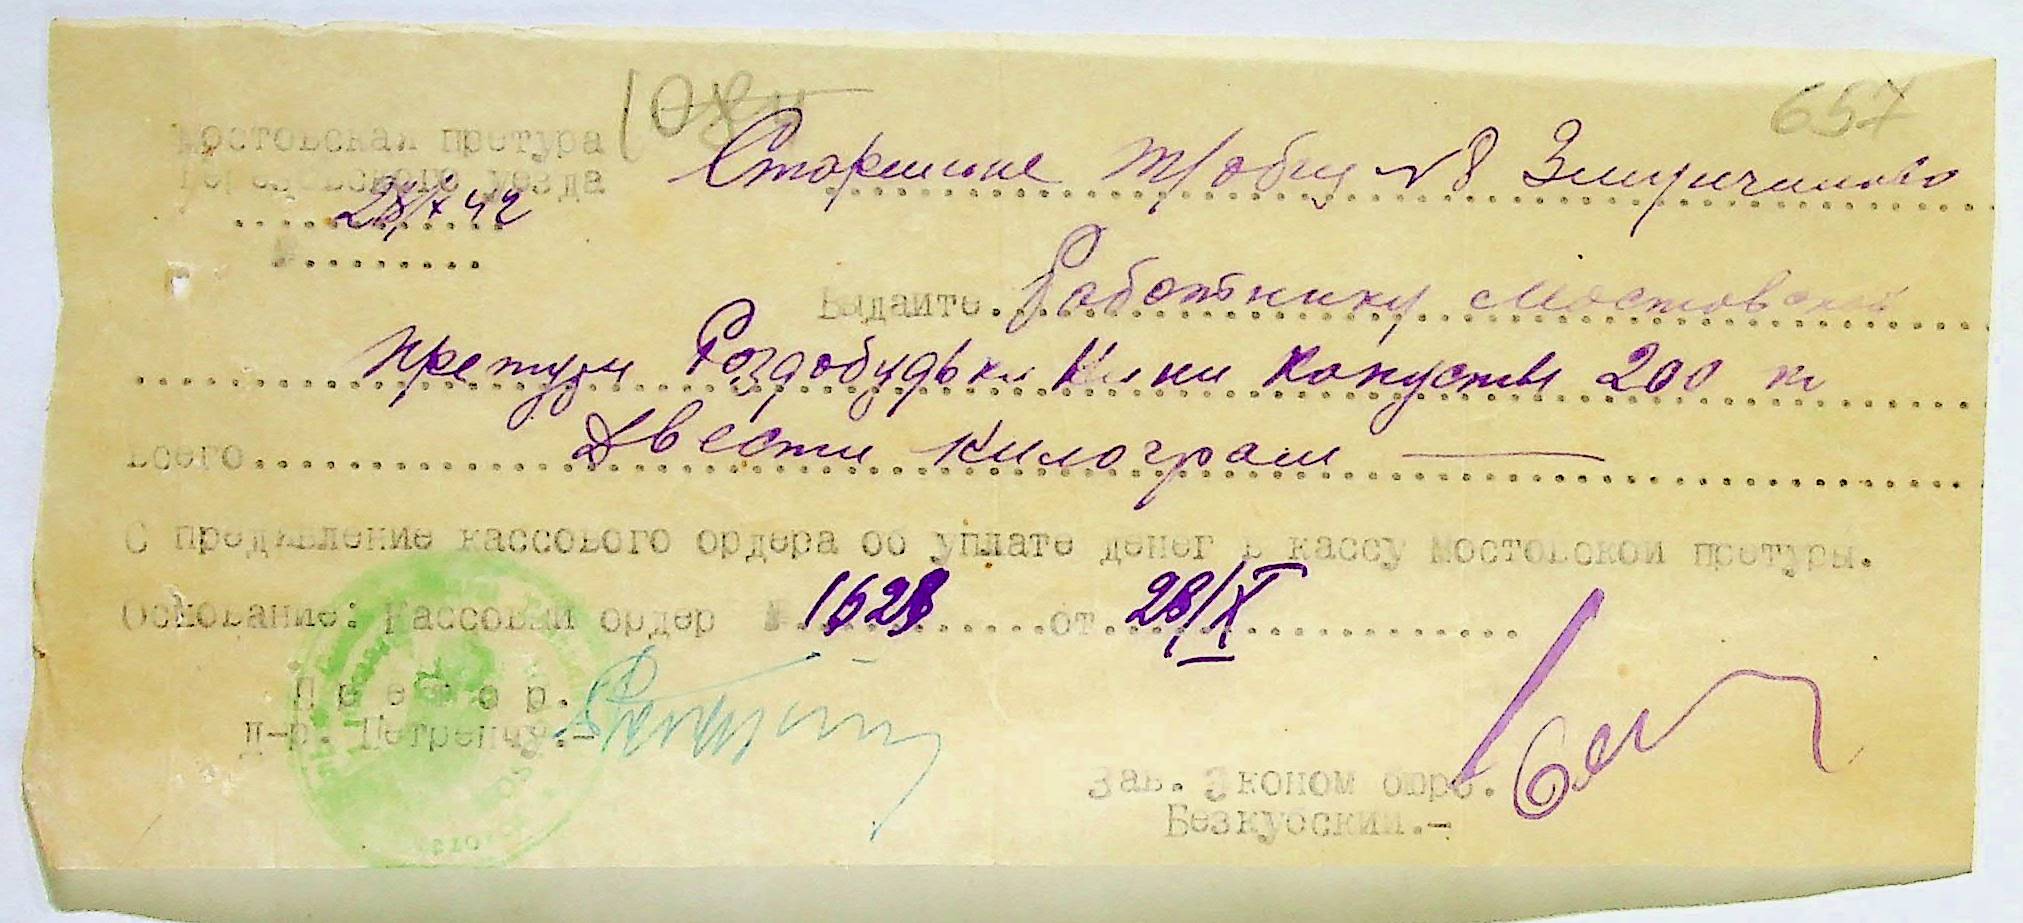 657
Мостовская претура
уезда
28/X 42
Старшине тр/общ №8 Змиричиново
№.........
Выдайте. Работнику Мостовской
претуры Роздобудько Кини капусты 200 кг
Всего Двести килограм —
С предявление кассового ордера об уплате денег в кассу мостовской претуры.
Основание: Кассовый ордер № 1628 от 28/X
Претор.
Д-р. Петренчу.-
Зав. Эконом отре.
Безкусский.-